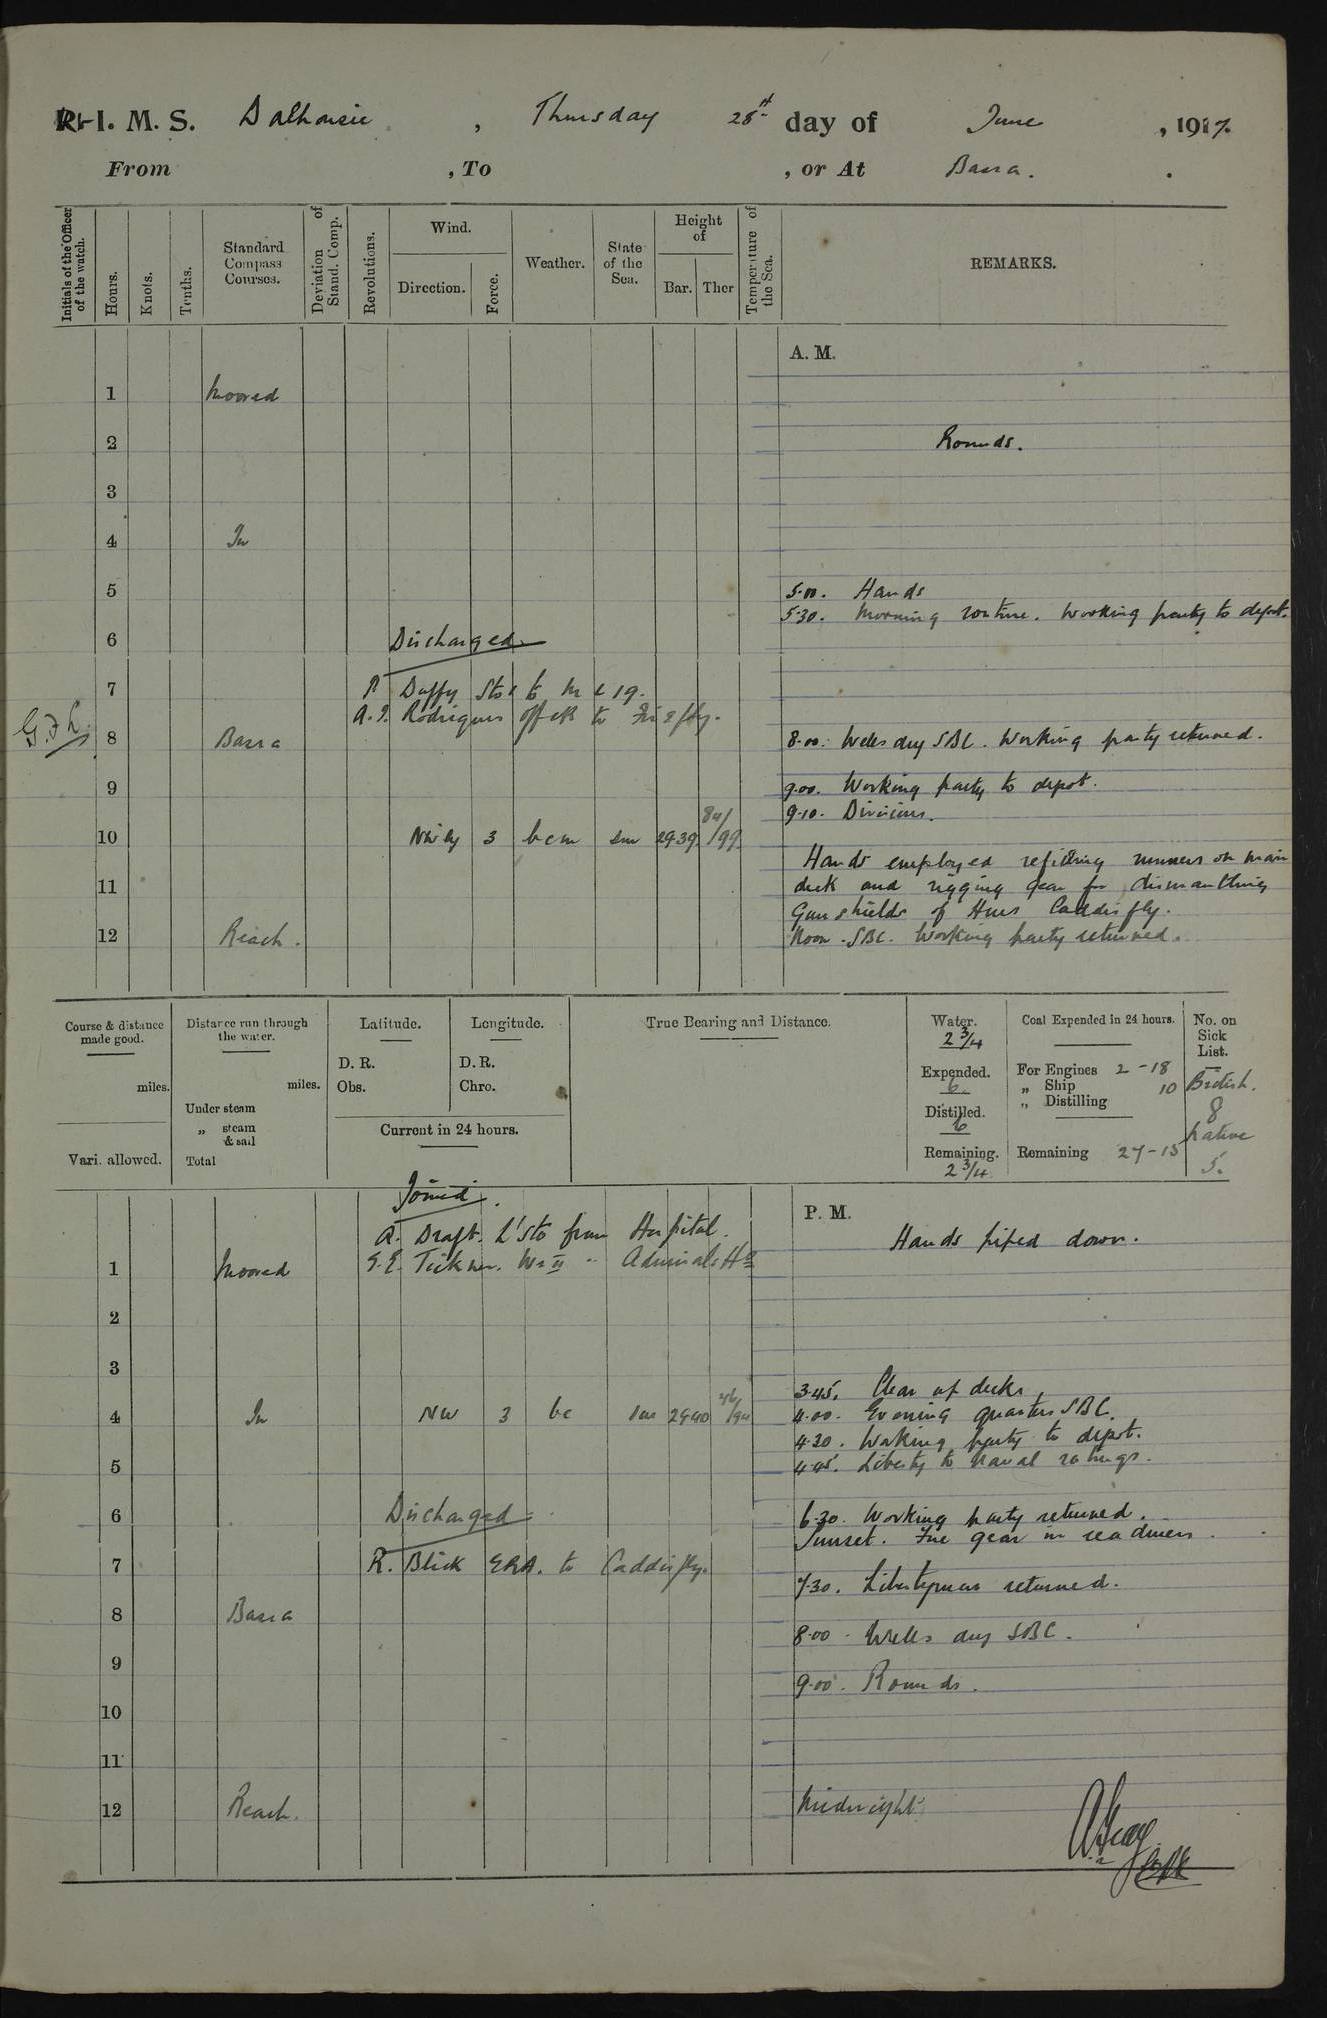 R. I. M. S. Dalhousie, Thursday 28th day of June, 1917.
From , To , or At Basra.
Initials of the Officer of the watch.
Hours.
Knots.
Tenths.
Standard Compass Courses.
Deviation of Stand. Comp.
Revolutions.
Wind.
Direction.
Force.
Weather.
State of the Sea.
Height of
Bar. Ther
Temperature of the Sea.
REMARKS.
A. M.
1 Moored
2 Rounds.
3
4 In
5 5.00. Hands
5.30. Morning routine. Working party to depot.
6 Discharged
7 Duffy Sto 1 to
A.J. Rodrigues off ck to
G.F.L. 8 Basra 8.00. Wells dry SBC. Working party returned.
9 9.00. Working party to depot.
9.10. Divisions.
10 NW'ly 3 bcm sm 29.39 84/99
Hands employed refitting runners on main
11 deck and rigging gear for dismantling
Gun shields of HMS Caddisfly.
12 Reach. Noon. SBC. Working party returned.
Course & distance made good.
miles.
Vari. allowed.
Distance run through the water.
miles.
Under steam
„ steam & sail
Total
Latitude.
D. R.
Obs.
Longitude.
D. R.
Chro.
Current in 24 hours.
True Bearing and Distance.
Water.
2 3/4
Expended.
6
Distilled.
6
Remaining.
2 3/4
Coal Expended in 24 hours.
For Engines 2-18
„ Ship 10
„ Distilling
Remaining 27-15
No. on Sick List.
British.
8
Native
5.
Joined.
P. M.
A. Draft. L'Sto from Hospital.
Hands piped down.
1 Moored G.E. Tickner. Wr II " Admirals Hd
2
3
3.45. Clear up decks.
4 In NW 3 bc sm 29.40 4.00. Evening quarters SBC.
4.30. Working party to depot.
5 4.45. Liberty to Naval ratings.
6 Discharged 6.30. Working party returned.
Sunset. Fire gear in readiness.
7 R. Blick ERA. to Caddisfly.
7.30. Libertymen returned.
8 Basra 8.00. Wells dry SBC.
9 9.00. Rounds.
10
11
12 Reach. Midnight